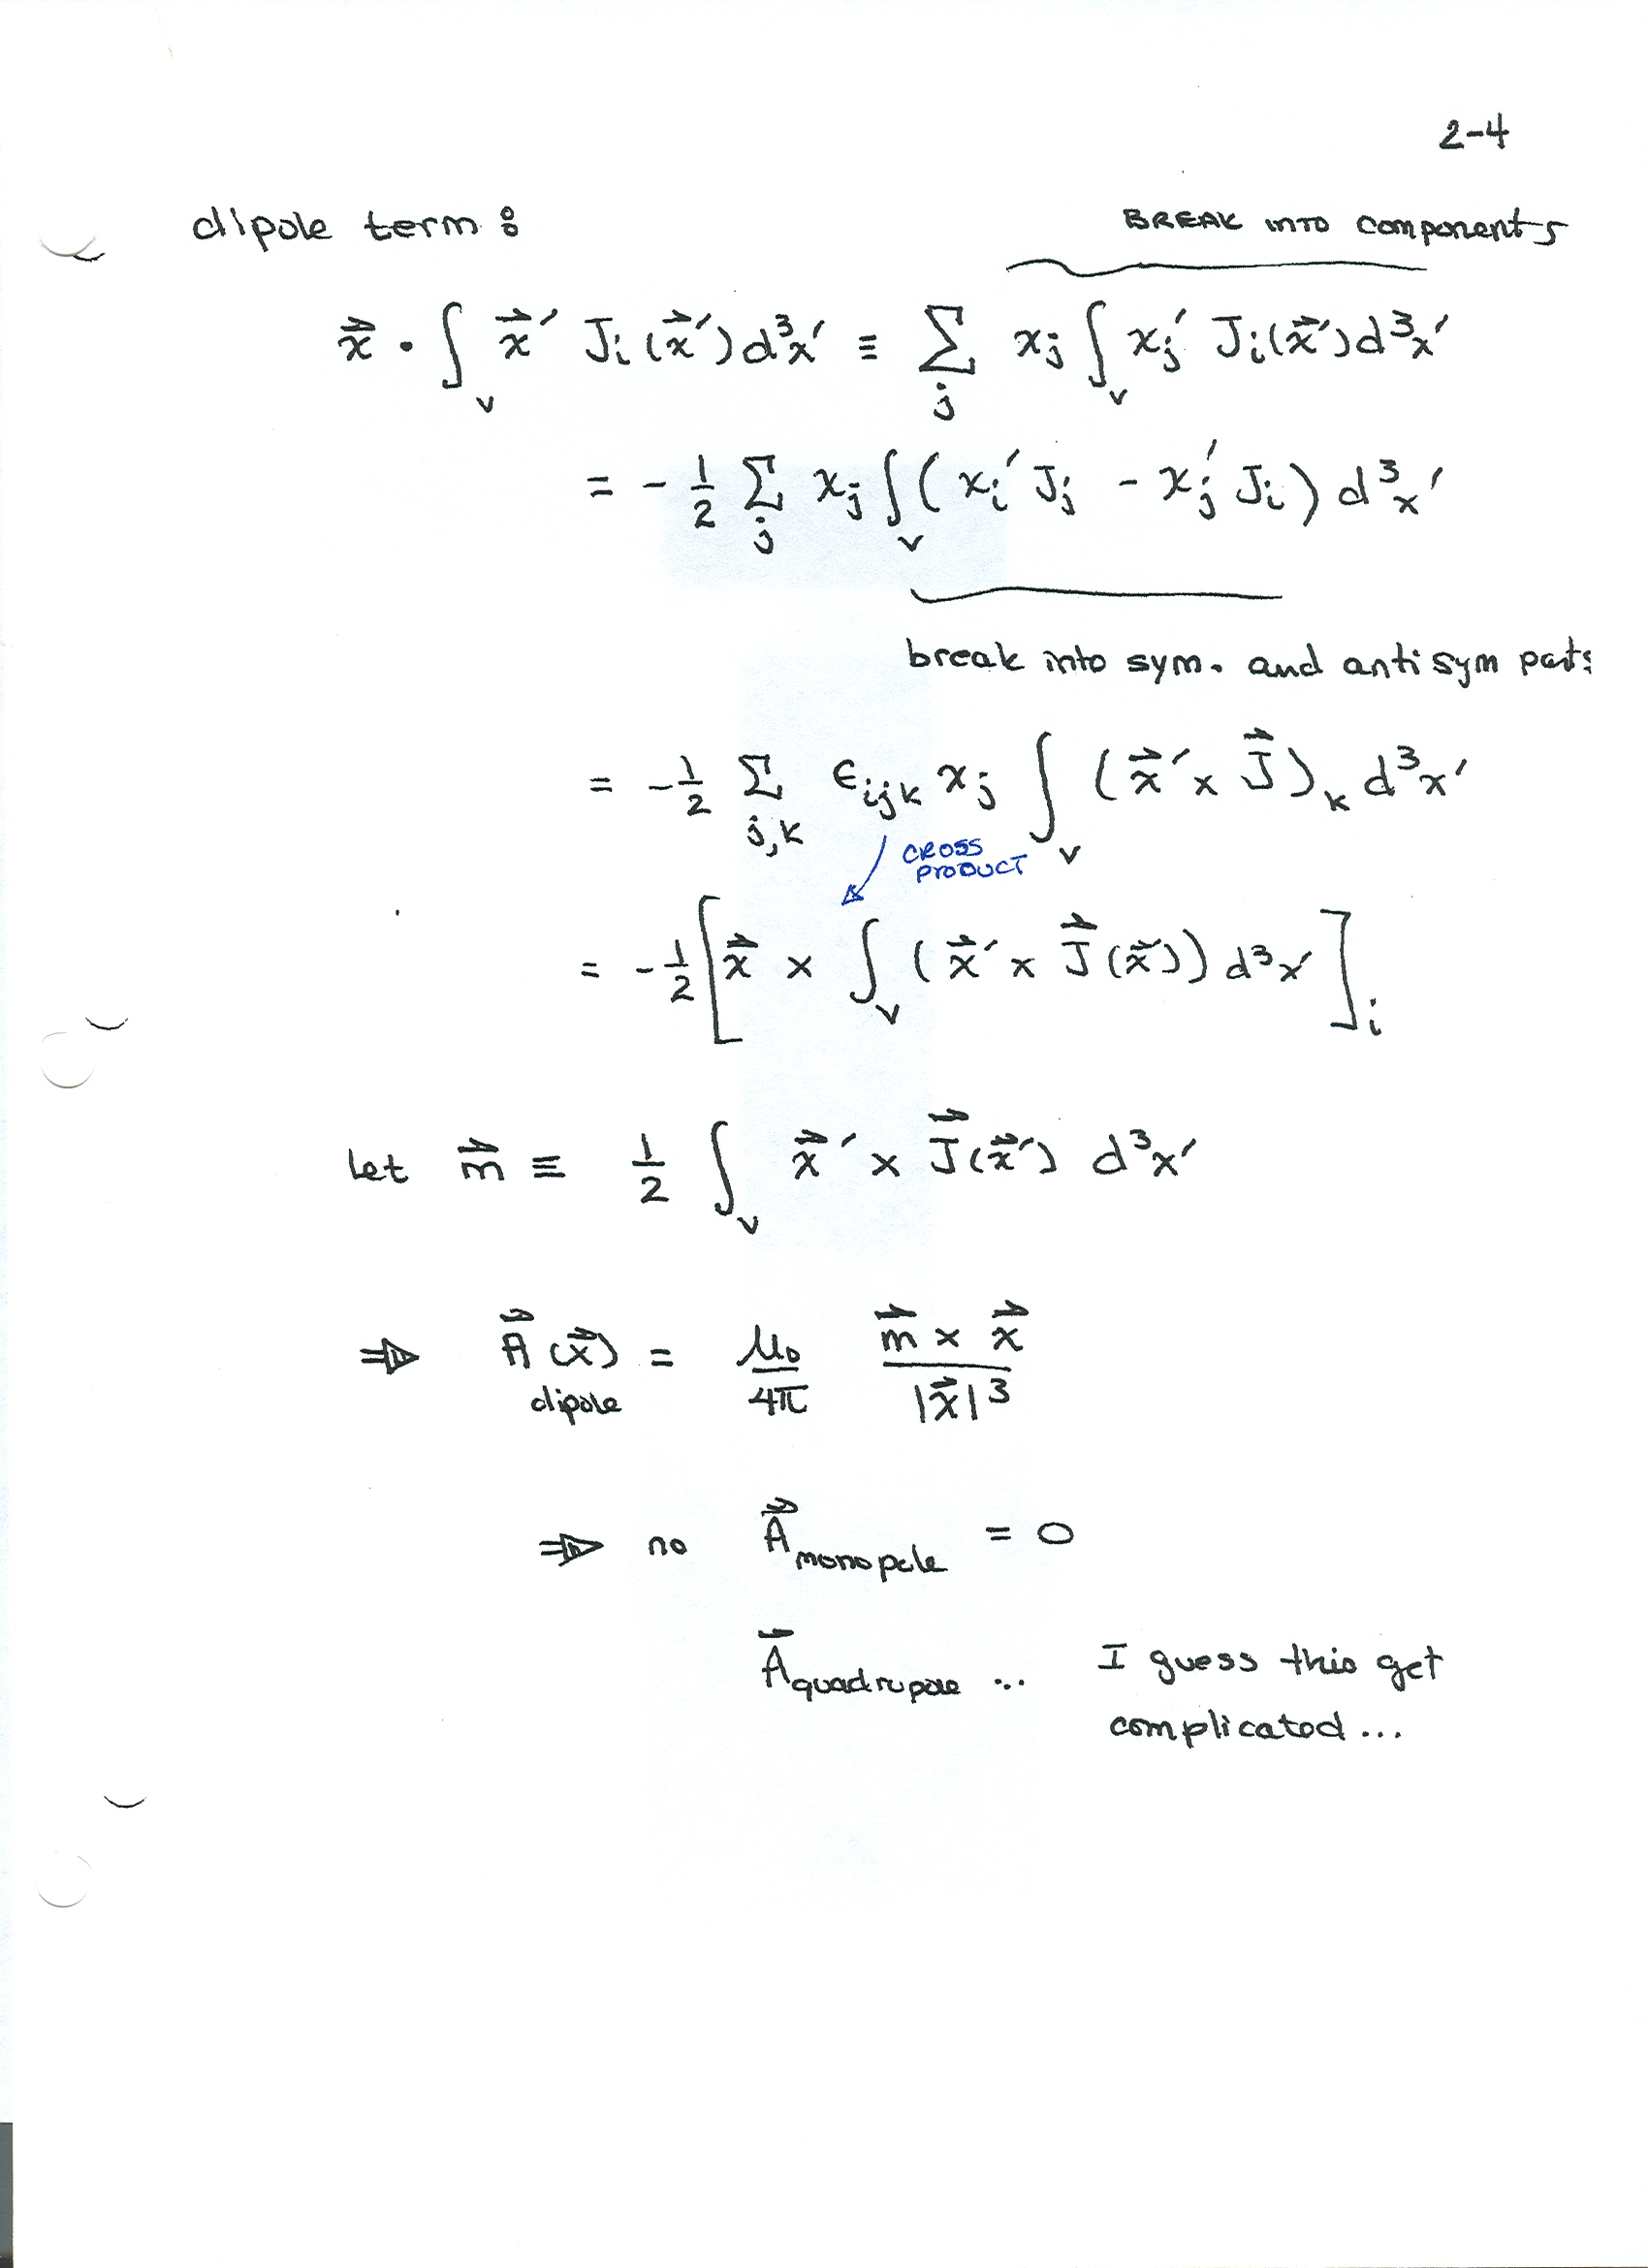 2-4
dipole term :
BREAK INTO components
x⃗ · ∫_V x⃗′ J_i(x⃗′)d³x′ ≡ Σ_j x_j ∫_V x_j′ J_i(x⃗′)d³x′
= - 1/2 Σ_j x_j ∫_V (x_i′ J_j - x_j′ J_i) d³x′
break into sym. and antisym parts
= -1/2 Σ_{j,k} ε_{ijk} x_j ∫_V (x⃗′ × J⃗)_k d³x′
CROSS
PRODUCT
= -1/2 [x⃗ × ∫_V (x⃗′ × J⃗(x⃗′)) d³x′]_i
Let m⃗ ≡ 1/2 ∫_V x⃗′ × J⃗(x⃗′) d³x′
⇒ A⃗(x⃗)_dipole = μ₀/4π m⃗ × x⃗/|x⃗|³
⇒ no A⃗_monopole = 0
A⃗_quadrupole ... I guess this get
complicated...